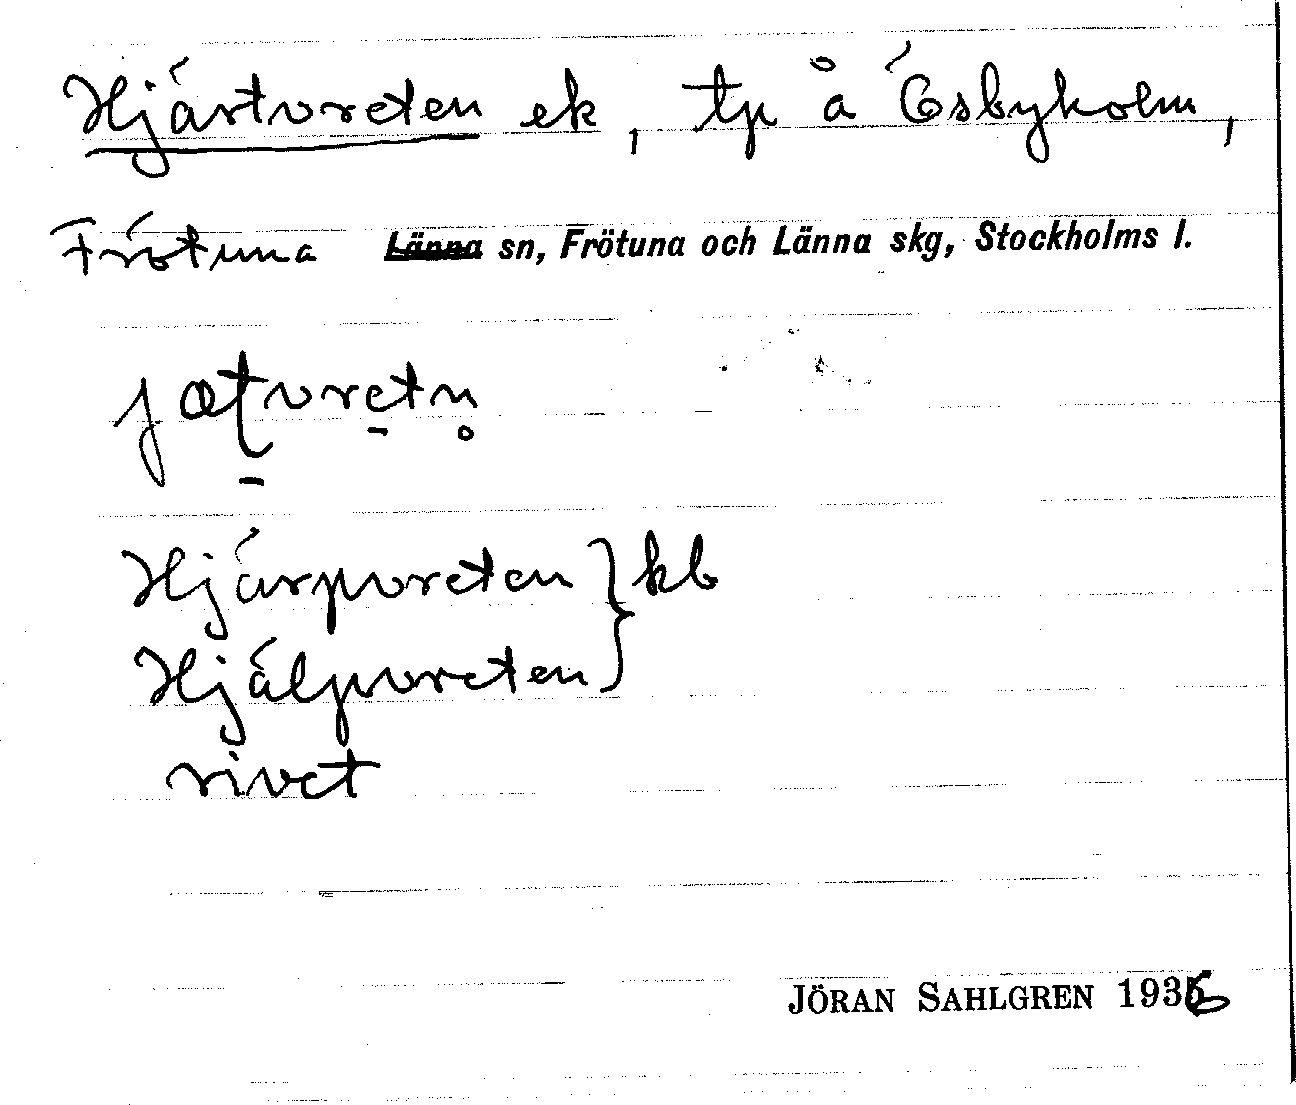 Hjärtvreten ek, tp å Ösbyholm,
Frötuna Länna sn, Frötuna och Länna skg, Stockholms l.
jæʈvretn̥
Hjärpvreten } kb
Hjälpvreten
rivet
JÖRAN SAHLGREN 1936